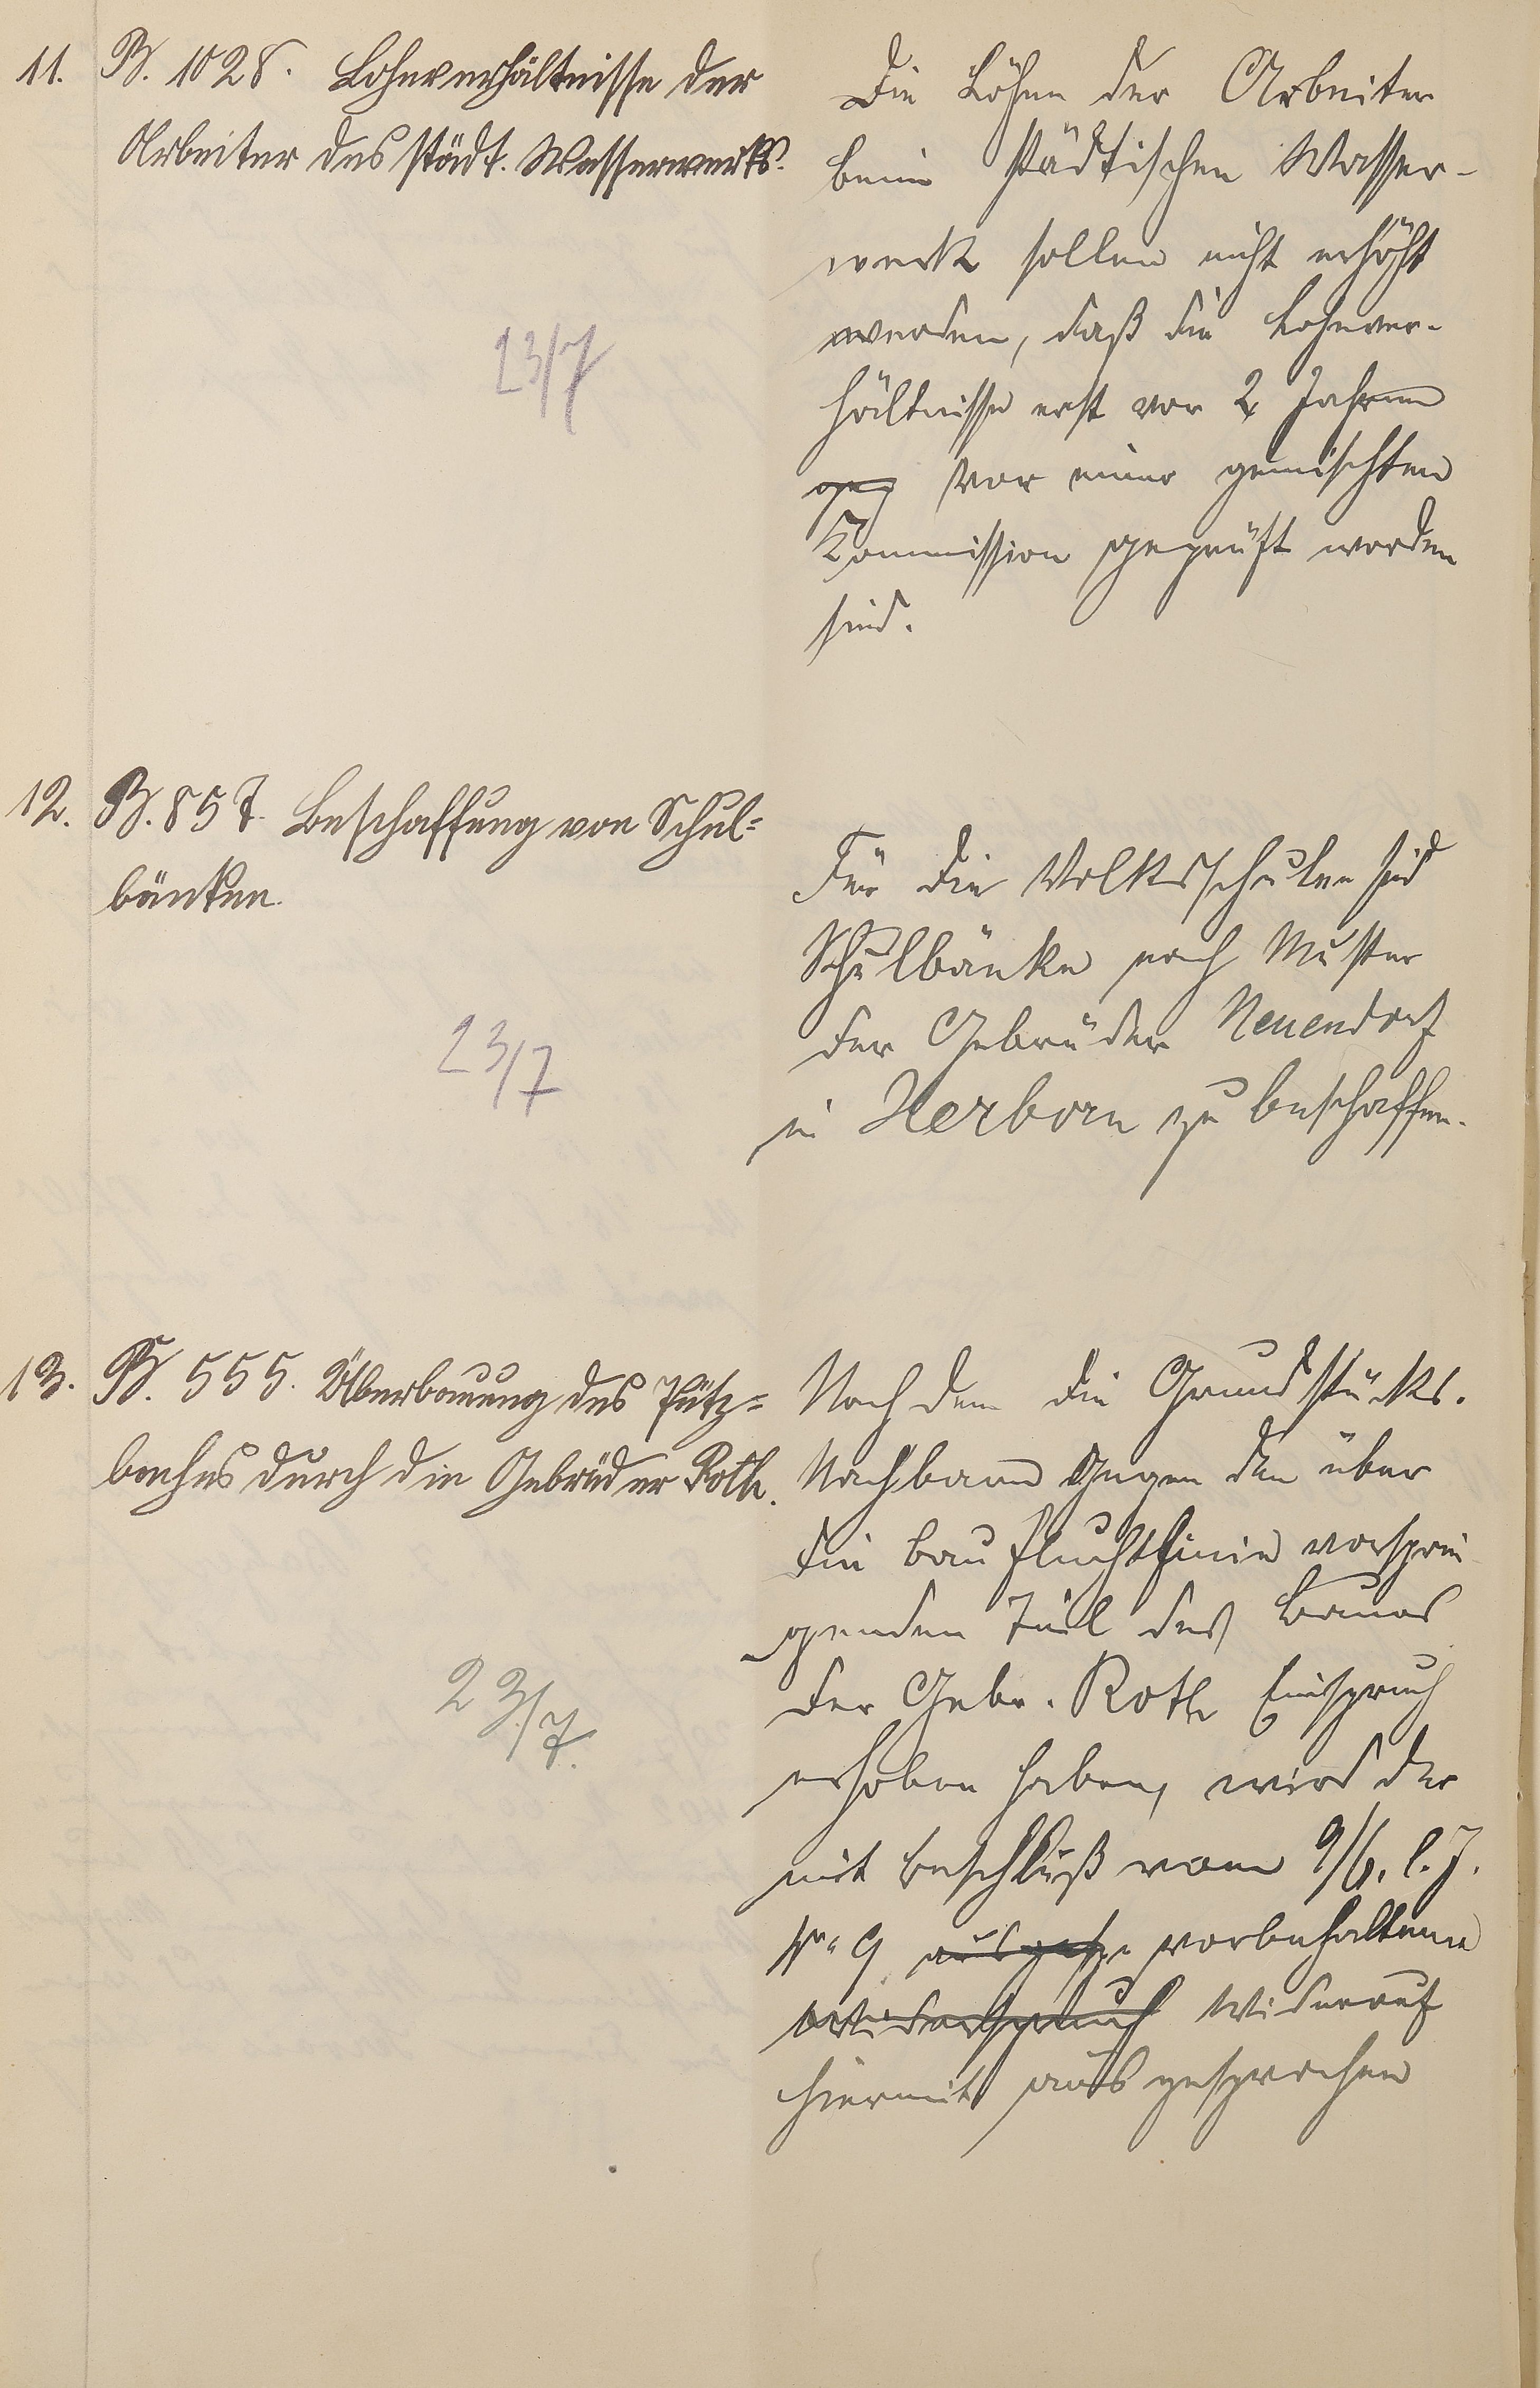 11. B. 1028. Lohnverhältnisse der
Arbeiter des städt. Wasserwerks.
23/7
Die Löhne der Arbeiter
beim städtischen Wasser-
werk sollen nicht erhöht
werden, daß die Lohnver-
hältnisse erst vor 2 Jahren
geg vor einer gemischten
Kommission geprüft worden
sind.
12. B. 857. Beschaffung von Schul=
bänken.
23/7
Für die Volksschulen sind
Schulbänke nach Muster
der Gebrüder Neuendorf
in Herborn zu beschaffen.
13. B. 555. Überbauung des Pütz=
baches durch die Gebrüder Roth.
23/7.
Nachdem die Grundstücks-
Nachbarn gegen den über
die Baufluchtlinie vorsprin-
genden Teil des Baues
der Gebr. Roth Einspruch
erhoben haben, wird der
mit Beschluß vom 9/6. l. J.
No 9 vorbehaltene
Widerspruch Widerruf
hiermit ausgesprochen